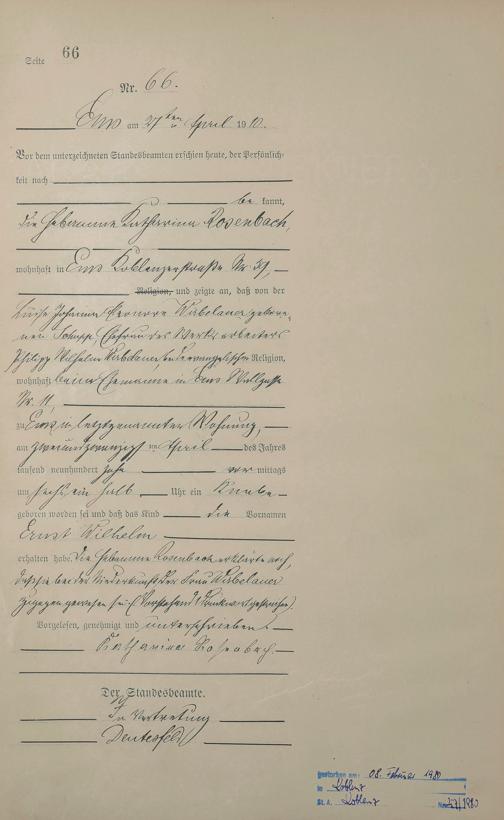 Seite 66
Nr. 66.
Ems am 27ten April 1910.
Vor dem unterzeichneten Standesbeamten erschien heute, der Persönlich-
keit nach
be kannt,
die Hebamme Katharina Rosenbach,
wohnhaft in Ems Koblenzerstraße Nr 59,
Religion, und zeigte an, daß von der
Luise Johanna Eleonore gebore-
nen Ehefrau des
Philipp Wilhelm evangelischer Religion,
wohnhaft beim Ehemanne in Ems Wallgasse
Nr. 11,
zu Ems in letztgenannter Wohnung,
am zweiundzwanzigsten April des Jahres
tausend neunhundert zehn vor mittags
um sechs ein halb Uhr ein Knabe
geboren worden sei und daß das Kind die Vornamen
Ernst Wilhelm
erhalten habe. Die Hebamme Rosenbach erklärte noch,
daß sie bei der Niederkunft der Frau
zugegen gewesen sei. (Vorstehend 1 Druckwort gestrichen).
Vorgelesen, genehmigt und unterschrieben
Katharina Rosenbach.
Der Standesbeamte.
In Vertretung
gestorben am: 08. Februar 1980
in Koblenz
St. A. Koblenz Nr. 37/1980